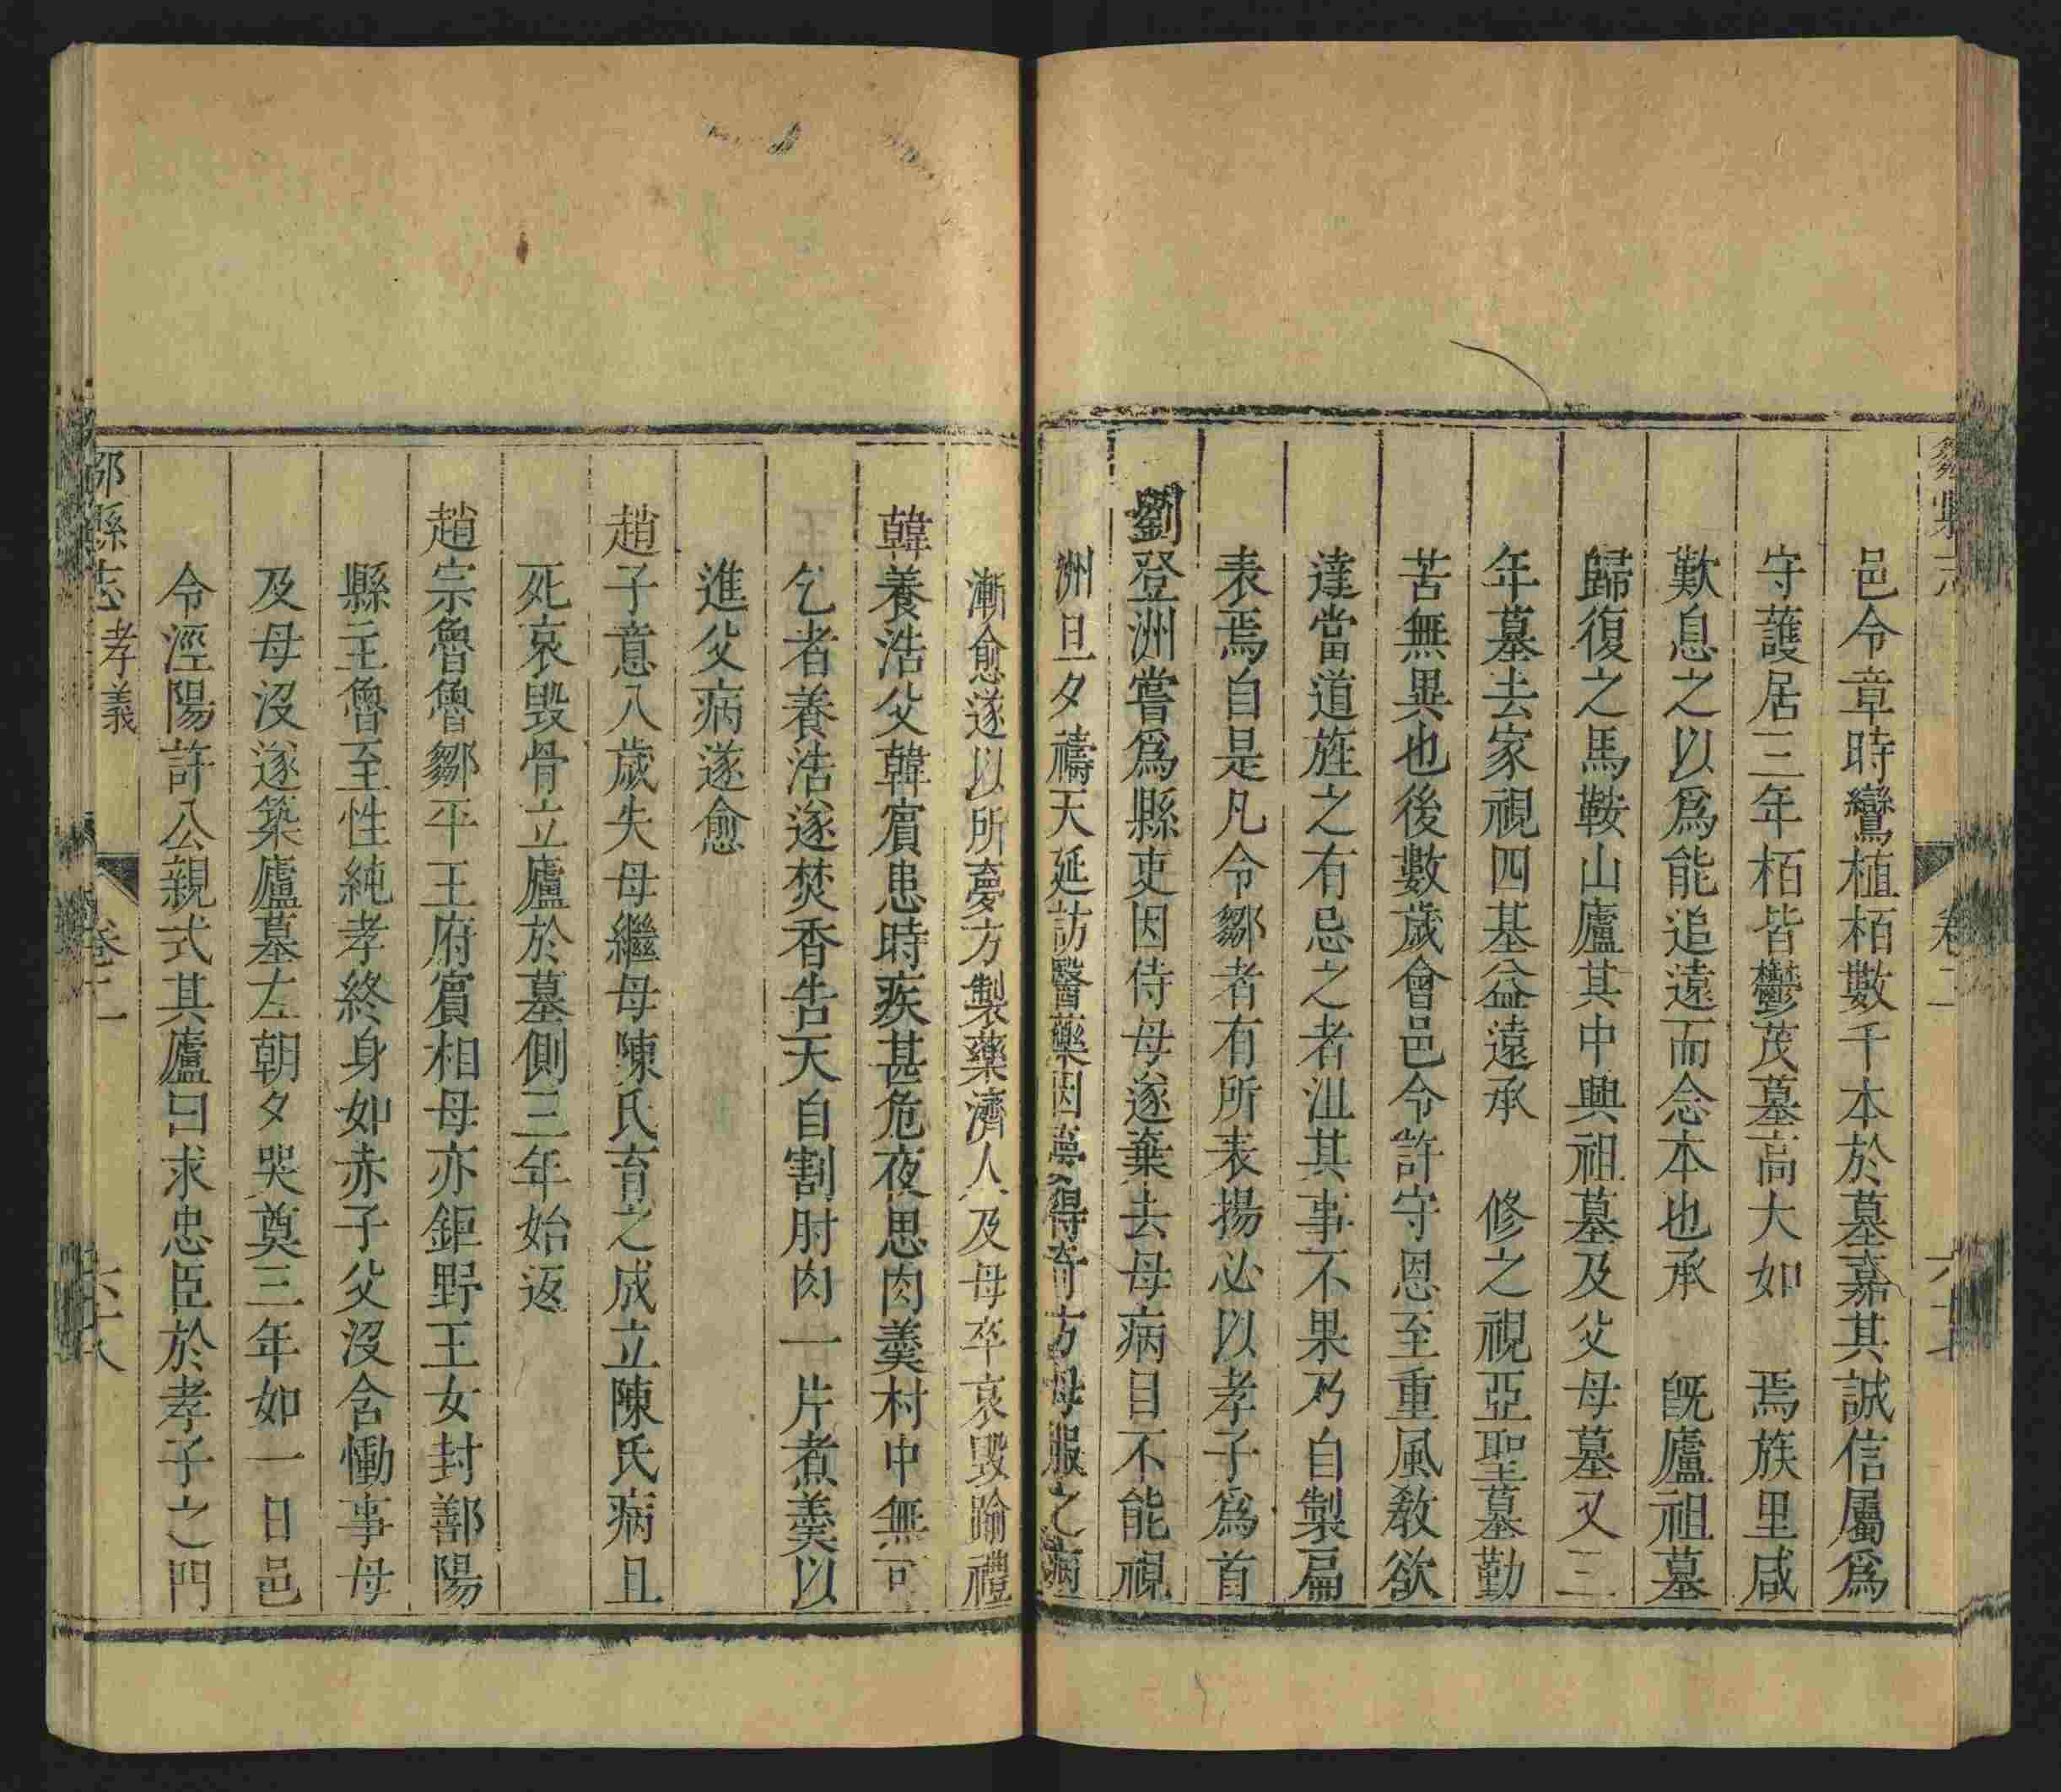 鄒縣志 卷二 六十七
邑令章時鸞植栢數千本於墓嘉其誠信屬爲
守護居三年栢皆鬱茂墓高大如 焉族里咸
歎息之以爲能追遠而念本也承 旣廬祖墓
歸復之馬鞍山廬其中興祖墓及父母墓又三
年墓去家視四基益遠承 修之視亞聖墓勤
苦無異也後數歲會邑令許守恩至重風敎欲
達當道旌之有忌之者沮其事不果乃自製扁
表焉自是凡令鄒者有所表揚必以孝子爲首
劉登洲嘗爲縣吏因侍母遂棄去母病目不能視
洲旦夕禱天延訪醫藥因夢得奇方母服之病
漸愈遂以所夢方製藥濟人及母卒哀毀踰禮
韓養浩父韓賔患時疾甚危夜思肉羹村中無可
乞者養浩遂焚香告天自割肘肉一片煮羹以
進父病遂愈
趙子意八歲失母繼母陳氏育之成立陳氏病且
死哀毀骨立廬於墓側三年始返
趙宗魯魯鄒平王府賔相母亦鉅野王女封鄯陽
縣主魯至性純孝終身如赤子父沒含慟事母
及母沒遂築廬墓左朝夕哭奠三年如一日邑
令涇陽許公親式其廬曰求忠臣於孝子之門
鄒縣志 孝義 卷二 六十八